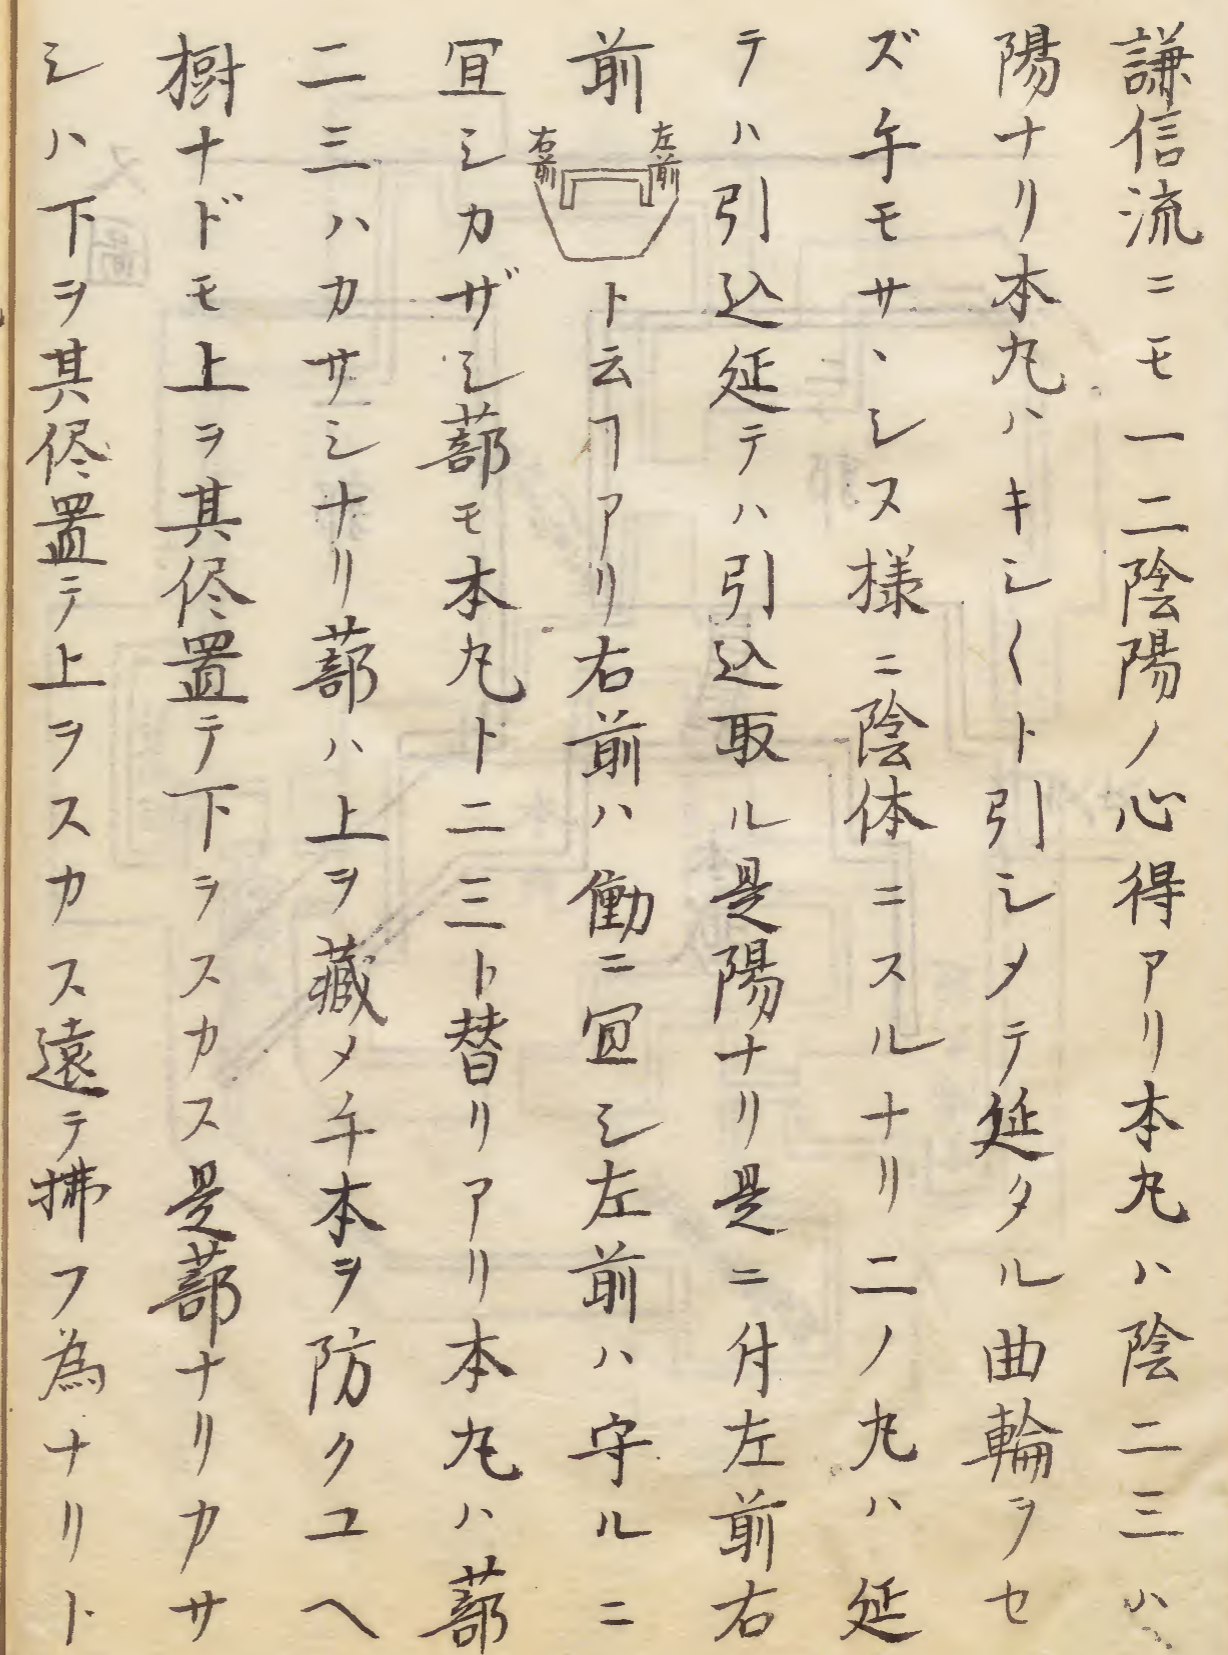 謙信流ニモ一二陰陽ノ心得アリ本丸ハ陰二三ハ
陽ナリ本丸ハキシ〱ト引シメテ延タル曲輪ヲセ
ズ午モサヽシス様ニ陰体ニスルナリ二ノ丸ハ延
テハ引込延テハ引込取ル是陽ナリ是ニ付左前右
前
左前
右前
ト云ヿアリ右前ハ働ニ宜シ左前ハ守ルニ
宜シカザシ蔀モ本丸ト二三ト替リアリ本丸ハ蔀
二三ハカサシナリ蔀ハ上ヲ藏メ午本ヲ防クユヘ
樹ナドモ上ヲ其侭置テ下ヲスカス是蔀ナリカサ
シハ下ヲ其侭置テ上ヲスカス遠テ拂フ為ナリト